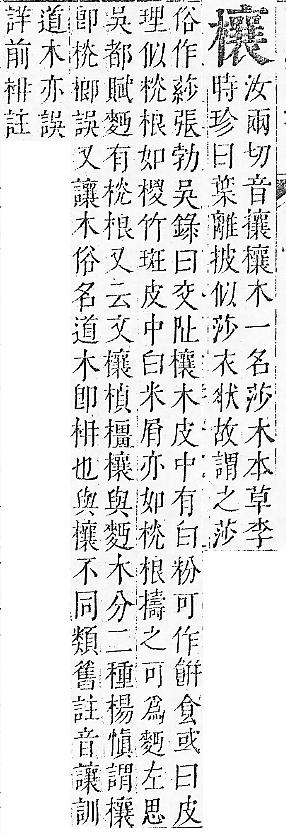 欀
汝兩切音穰欀木一名莎木本草李
時珍曰葉離披似莎衣狀故謂之莎
俗作張勃吳錄曰交阯欀木皮中有白粉可作餅食或曰皮
理似桄桹如椶竹斑皮中白米屑亦如桄桹擣之可爲麪左思
吳都賦麪有桄桹又云文欀楨橿欀與麪木分二種楊愼謂欀
卽桄榔誤又讓木俗名道木卽枏也與欀不同類舊註音讓訓
道木亦誤
詳前枏註